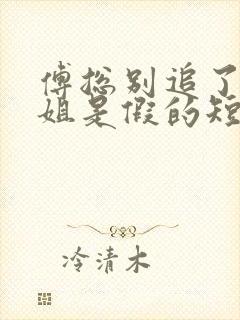 傅总别追了
姐是假的短
冷清木